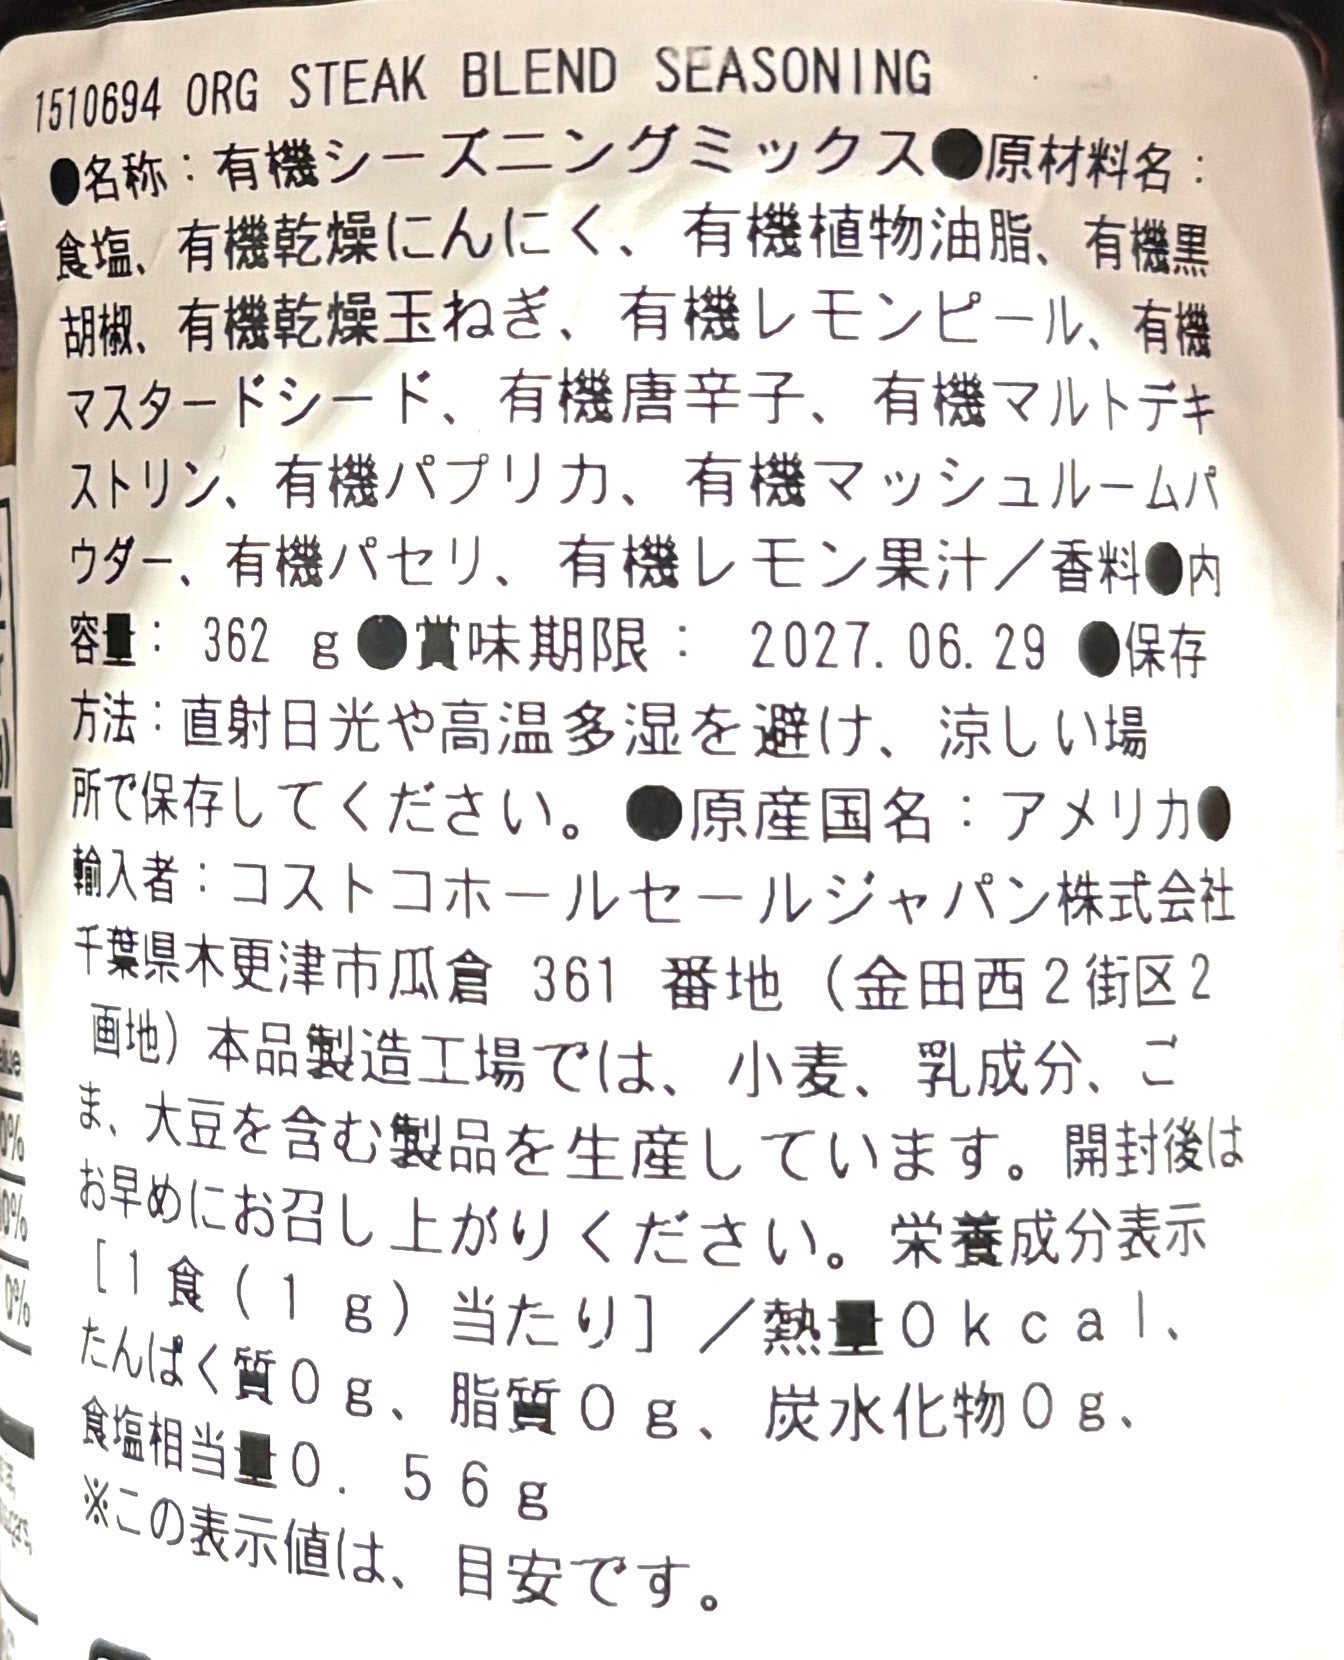 1510694 ORG STEAK BLEND SEASONING
●名称：有機シーズニングミックス●原材料名：
食塩、有機乾燥にんにく、有機植物油脂、有機黒
胡椒、有機乾燥玉ねぎ、有機レモンピール、有機
マスタードシード、有機唐辛子、有機マルトデキ
ストリン、有機パプリカ、有機マッシュルームパ
ウダー、有機パセリ、有機レモン果汁／香料●内
容量： 362 g●賞味期限： 2027.06.29 ●保存
方法：直射日光や高温多湿を避け、涼しい場
所で保存してください。●原産国名：アメリカ●
輸入者：コストコホールセールジャパン株式会社
千葉県木更津市瓜倉 361 番地（金田西２街区２
画地）本品製造工場では、小麦、乳成分、ご
ま、大豆を含む製品を生産しています。開封後は
お早めにお召し上がりください。栄養成分表示
［１食（１ｇ）当たり］／熱量０ｋｃａｌ、
たんぱく質０ｇ、脂質０ｇ、炭水化物０ｇ、
食塩相当量０．５６ｇ
※この表示値は、目安です。